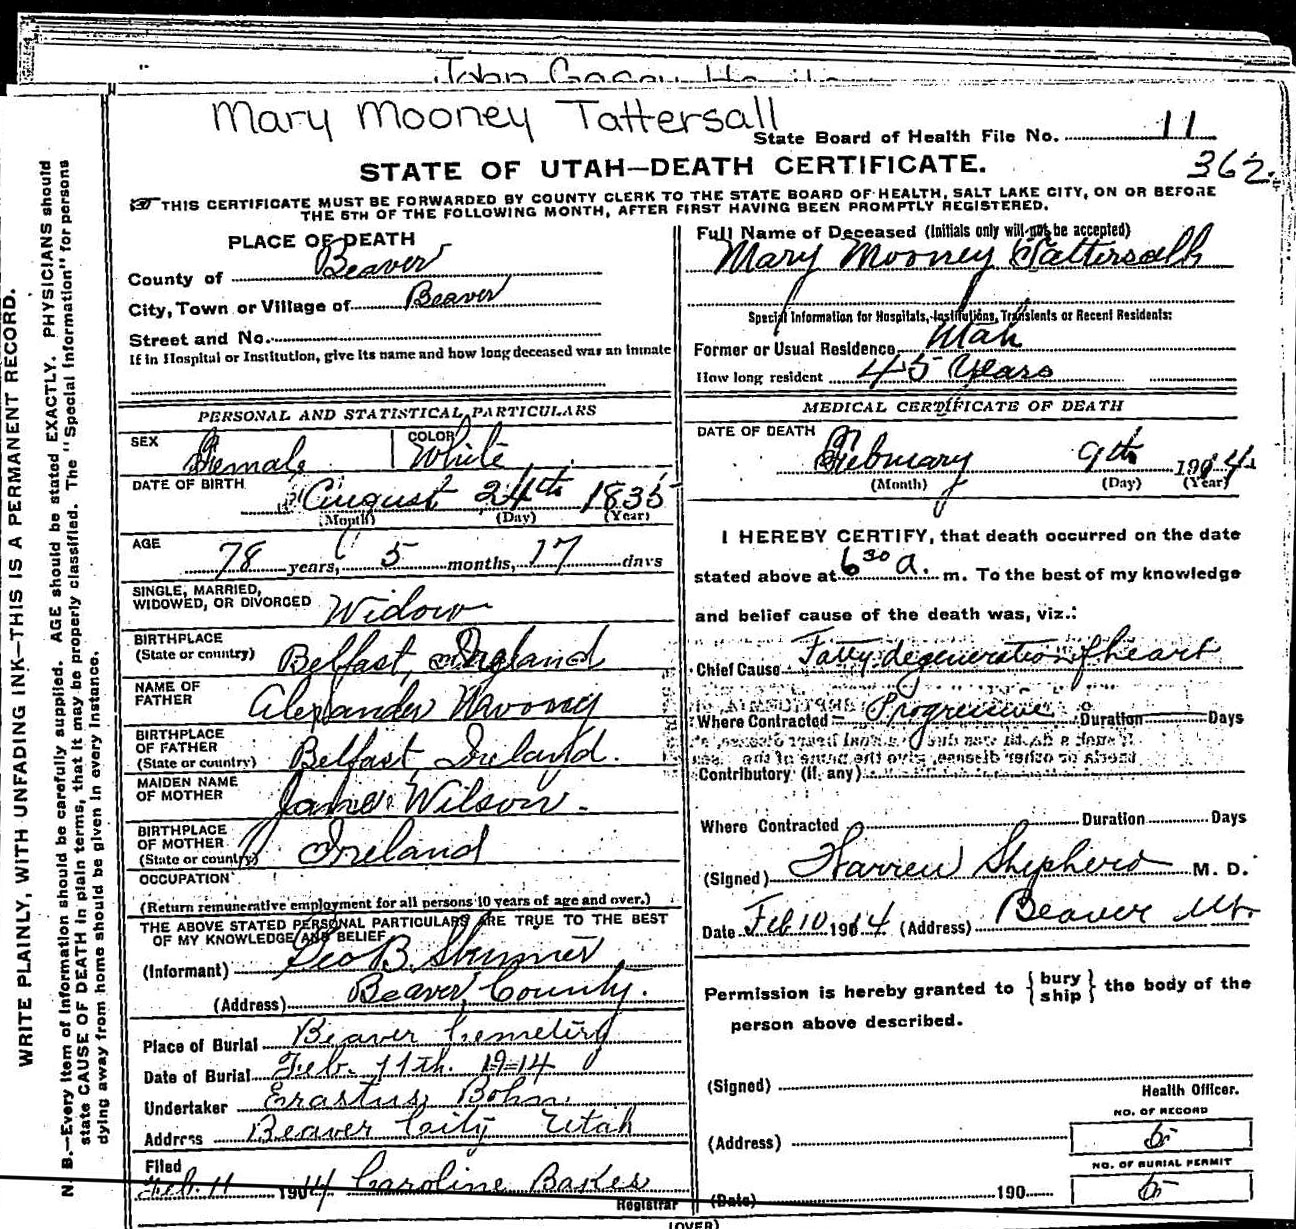 Mary Mooney Tattersall
State Board of Health File No. 11
362.
STATE OF UTAH—DEATH CERTIFICATE.
THIS CERTIFICATE MUST BE FORWARDED BY COUNTY CLERK TO THE STATE BOARD OF HEALTH, SALT LAKE CITY, ON OR BEFORE
THE 5TH OF THE FOLLOWING MONTH, AFTER FIRST HAVING BEEN PROMPTLY REGISTERED.
WRITE PLAINLY, WITH UNFADING INK—THIS IS A PERMANENT RECORD.
N. B.—Every item of information should be carefully supplied. AGE should be stated EXACTLY. PHYSICIANS should
state CAUSE OF DEATH in plain terms, that it may be properly classified. The "Special Information" for persons
dying away from home should be given in every instance.
PLACE OF DEATH
County of Beaver
City, Town or Village of Beaver
Street and No.
If in Hospital or Institution, give its name and how long deceased was an inmate
PERSONAL AND STATISTICAL PARTICULARS
SEX Female COLOR White
DATE OF BIRTH August 24th 1835
(Month) (Day) (Year)
AGE 78 years, 5 months, 17 days
SINGLE, MARRIED,
WIDOWED, OR DIVORCED Widow
BIRTHPLACE
(State or country) Belfast, Ireland
NAME OF
FATHER Alexander Mooney
BIRTHPLACE
OF FATHER
(State or country) Belfast, Ireland.
MAIDEN NAME
OF MOTHER Jane Wilson.
BIRTHPLACE
OF MOTHER
(State or country) Ireland
OCCUPATION
(Return remunerative employment for all persons 10 years of age and over.)
THE ABOVE STATED PERSONAL PARTICULARS ARE TRUE TO THE BEST
OF MY KNOWLEDGE AND BELIEF
(Informant) Geo B. Skinner
(Address) Beaver County.
Place of Burial Beaver Cemetery
Date of Burial Feb. 11th. 1914
Undertaker Erastus Bohn
Address Beaver City Utah
Filed
Feb. 11 1914 Caroline Bakes
Registrar
Full Name of Deceased (Initials only will not be accepted)
Mary Mooney Tattersall
Special Information for Hospitals, Institutions, Transients or Recent Residents:
Former or Usual Residence Utah
How long resident 45 Years
MEDICAL CERTIFICATE OF DEATH
DATE OF DEATH
February 9th 1914
(Month) (Day) (Year)
I HEREBY CERTIFY, that death occurred on the date
stated above at 6 30 a. m. To the best of my knowledge
and belief cause of the death was, viz.:
Chief Cause Fatty degeneration of heart
Where Contracted Progressive Duration Days
Contributory (if any)
Where Contracted Duration Days
(Signed) Warren Shepherd M. D.
Date Feb 10 1914 (Address) Beaver Ut.
Permission is hereby granted to { bury ship } the body of the
person above described.
(Signed)
Health Officer.
NO. OF RECORD
(Address) 5
NO. OF BURIAL PERMIT
5
(Date) 190
(OVER)